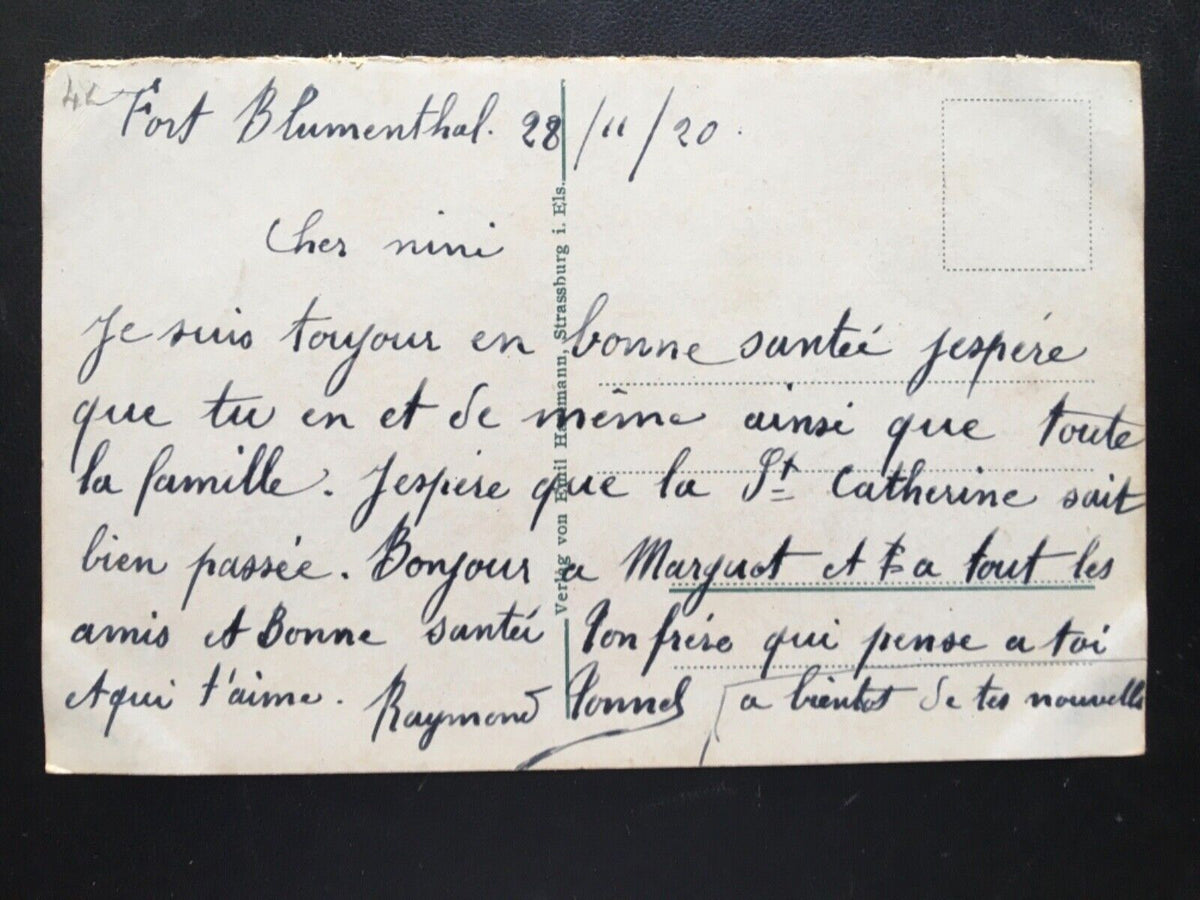 4L
Fort Blumenthal. 28/11/20.
Cher nini
Je suis toujour en bonne santéé jespére
que tu en et de même ainsi que toute
la famille. Jespére que la St Catherine sait
bien passée. Bonjour a Marguot et a tout les
amis et Bonne santéé Ton frére qui pense a toi
et qui t'aime. Raymond Tonnel
a bientot de tes nouvelle
Verlag von Emil Hartmann, Strassburg i. Els.